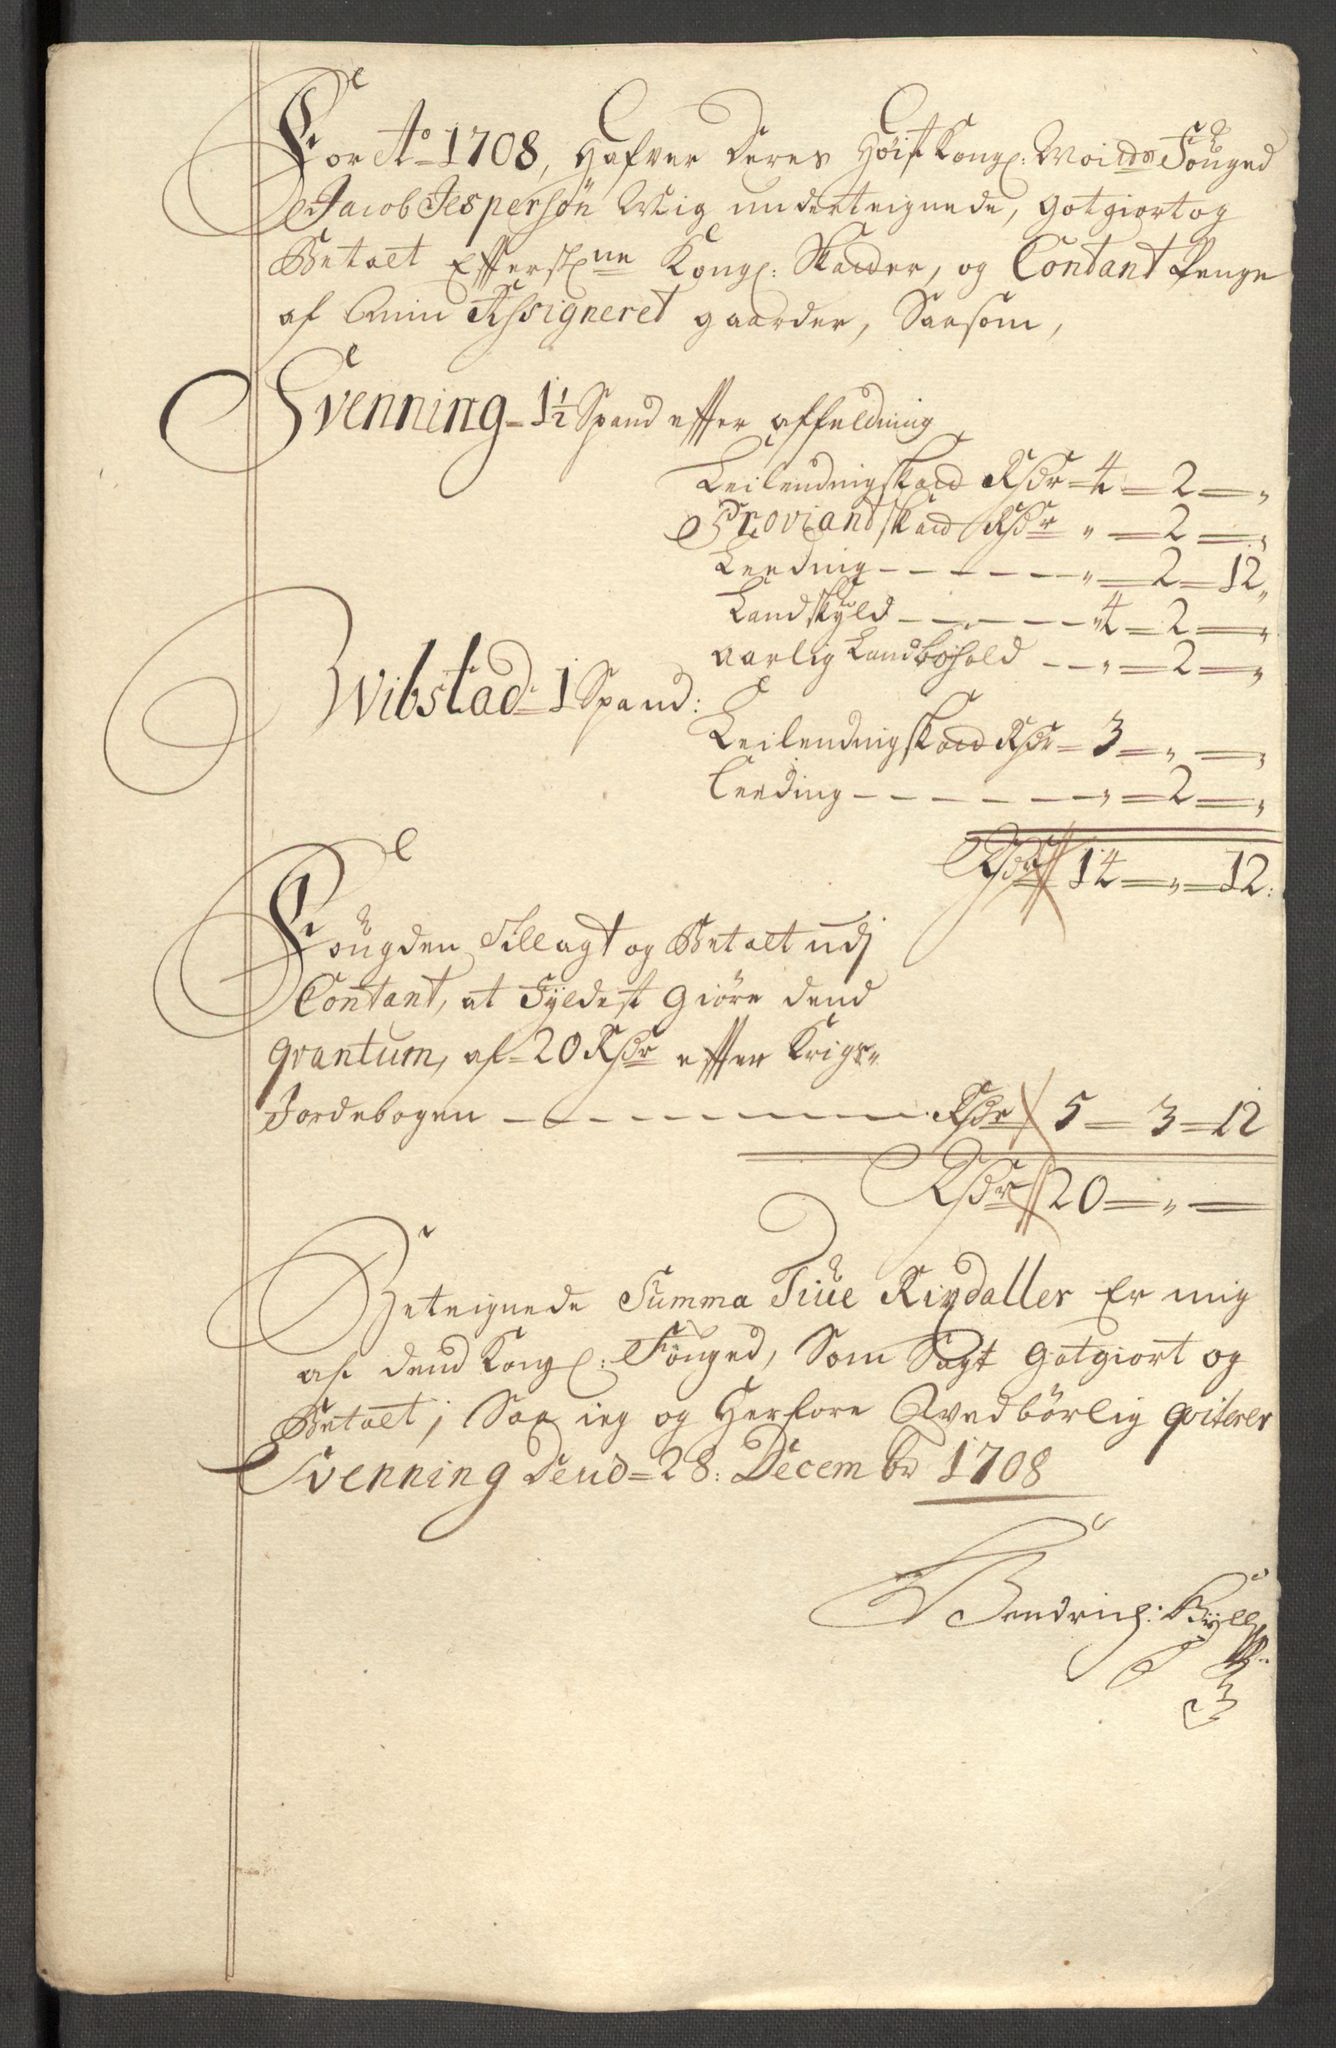 For Ao 1708, Hafver Deres Høist Kongl: Mai:ds Fouged
Jacob Jespersøn Mig underteignede, gotgiort og
Betalt Effterskne Kongl: Skatter, og Contant Penge
af Min Assigneret gaarder, Saasom,
Svenning – 1½ Spand effter affeldning
Leilendingskatt Rdr 4 = 2 = „
Proviantskatt Rdr „ = 2 = „
Leeding – – – – „ = 2 = 12„
Landskyld – – – – „ 4 = 2 = „
aarlig Landbohold – – „ = 2 = „
Wibstad – 1 Spand:
Leilendingskatt Rdr = 3 = „ = „
Leeding – – – – – „ = 2 = „
Rdr 14 = „ = 12:
Fougden Tillagt og Betalt udj
Contant, at Fyldest giøre dend
qvantum, af – 20 Rdr effter Krigs„
Jordebogen – – – – – – Rdr 5 = 3 = 12
Rdr 20 = „ =
Beteignede Summa Tiue Rixdaller Er mig
af dend Kongl: Fouged, Som Sagt gotgiort og
Betalt; Saa ieg og Herfore Tilbørlig qviterer
Svenning Dend = 28: Decembr 1708